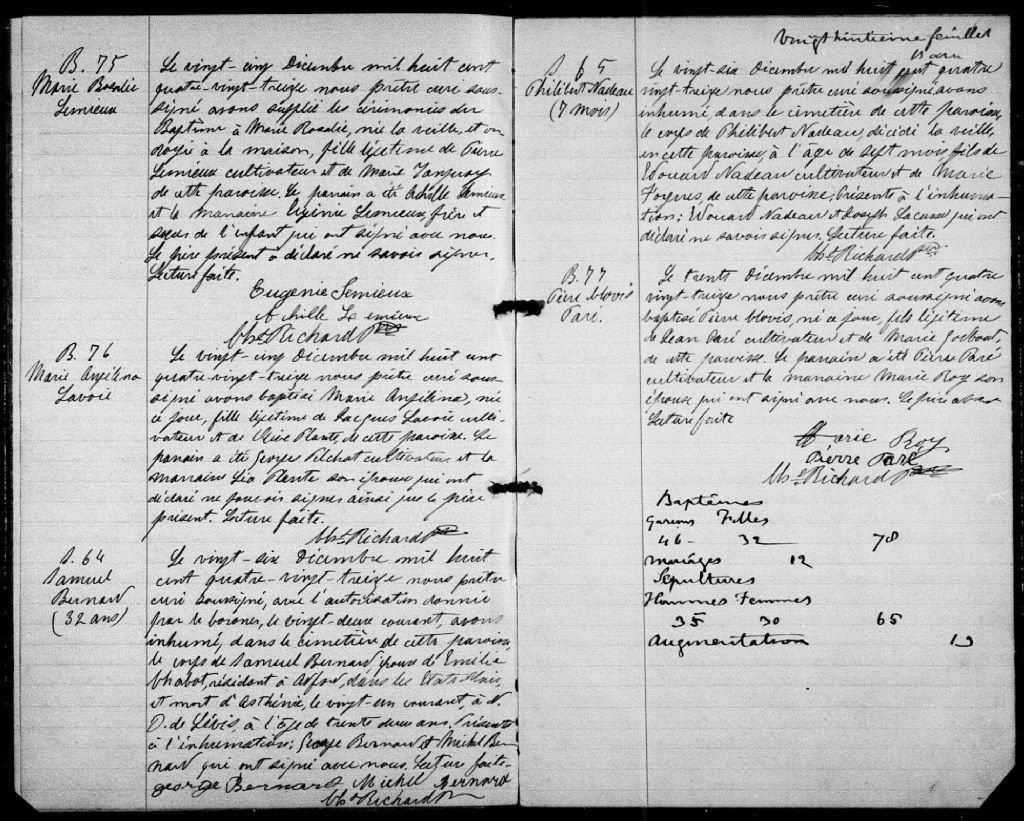 B. 75
Marie Rosalie
Lemieux
Le vingt-cinq Décembre mil huit cent
quatre-vingt-treize nous prêtre curé sous-
signé avons suppléé les cérémonies du
Baptême à Marie Rosalie, née la veille, et on-
doyée à la maison, fille légitime de Pierre
Lemieux cultivateur et de Marie Tanguay
de cette paroisse. Le parrain a été Achille Lemieux
et la marraine Eugénie Lemieux, frère et
soeur de l'enfant qui ont signé avec nous.
Le père présent a déclaré ne savoir signer.
Lecture faite.
Eugenie Lemieux
Achille Lemieux
Chs. Richard Ptre
B. 76
Marie Angélina
Lavoie
Le vingt-cinq Décembre mil huit cent
quatre-vingt-treize nous prêtre curé sous-
signé avons baptisé Marie Angélina, née
ce jour, fille légitime de Jacques Lavoie culti-
vateur et de Olive Plante, de cette paroisse. Le
parrain a été Georges Pilchat cultivateur et la
marraine Léa Plante son épouse qui ont
déclaré ne pouvoir signer ainsi que le père
présent. Lecture faite.
Chs. Richard Ptre
S. 64
Samuel
Bernard
(32 ans)
Le vingt-six Décembre mil huit
cent quatre-vingt-treize nous prêtre
curé soussigné, avec l'autorisation donnée
par le coroner, le vingt-deux courant, avons
inhumé, dans le cimetière de cette paroisse,
le corps de Samuel Bernard époux de Emilie
Chabot, résidant à dans les Etats-Unis,
et mort d'Asthénie, le vingt-un courant, à N.
D. de Lévis, à l'âge de trente deux ans. Présents
à l'inhumation: George Bernard et Michel Ber
nard qui ont signé avec nous. Lecture faite.
george Bernard Michel Bernard
Chs Richard Ptre
Vingt huitieme feuillet
S. 65
Philibert Nadeau
(7 mois)
Le vingt-six Décembre mil huit cent quatre
vingt-treize nous prêtre curé soussigné avons
inhumé, dans le cimetière de cette paroisse,
le corps de Philibert Nadeau, décédé la veille,
en cette paroisse, à l'âge de sept mois, fils de
Edouard Nadeau cultivateur et de Marie
de cette paroisse. Présents à l'inhuma-
tion: Edouard Nadeau et Joseph Lacasse qui ont
déclaré ne savoir signer. Lecture faite.
Chs. Richard Ptre
B. 77
Pierre Clovis
Paré.
Le trente Décembre mil huit cent quatre
vingt-treize nous prêtre curé soussigné avons
baptisé Pierre Clovis, né ce jour, fils légitime
de Jean Paré cultivateur et de Marie Godbout,
de cette paroisse. Le parrain a été Pierre Paré
cultivateur et la marraine Marie Roy son
épouse qui ont signé avec nous. Le père absent
Lecture faite
Marie Roy
Pierre Paré
Chs. Richard Ptre
Baptêmes
Garçons Filles
46 - 32 78
Mariages 12
Sépultures
Hommes Femmes
35 30 65
Augmentation 13